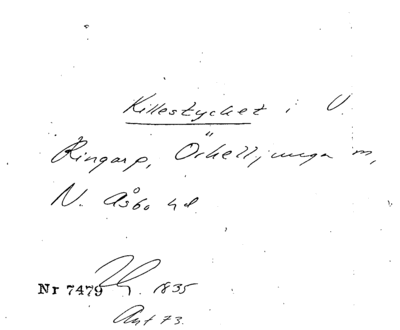 Killestycket i V.
Ringarp, Örkelljunga sn,
N. Åsbo hd.
Nr 7479 1835
Ant 73.